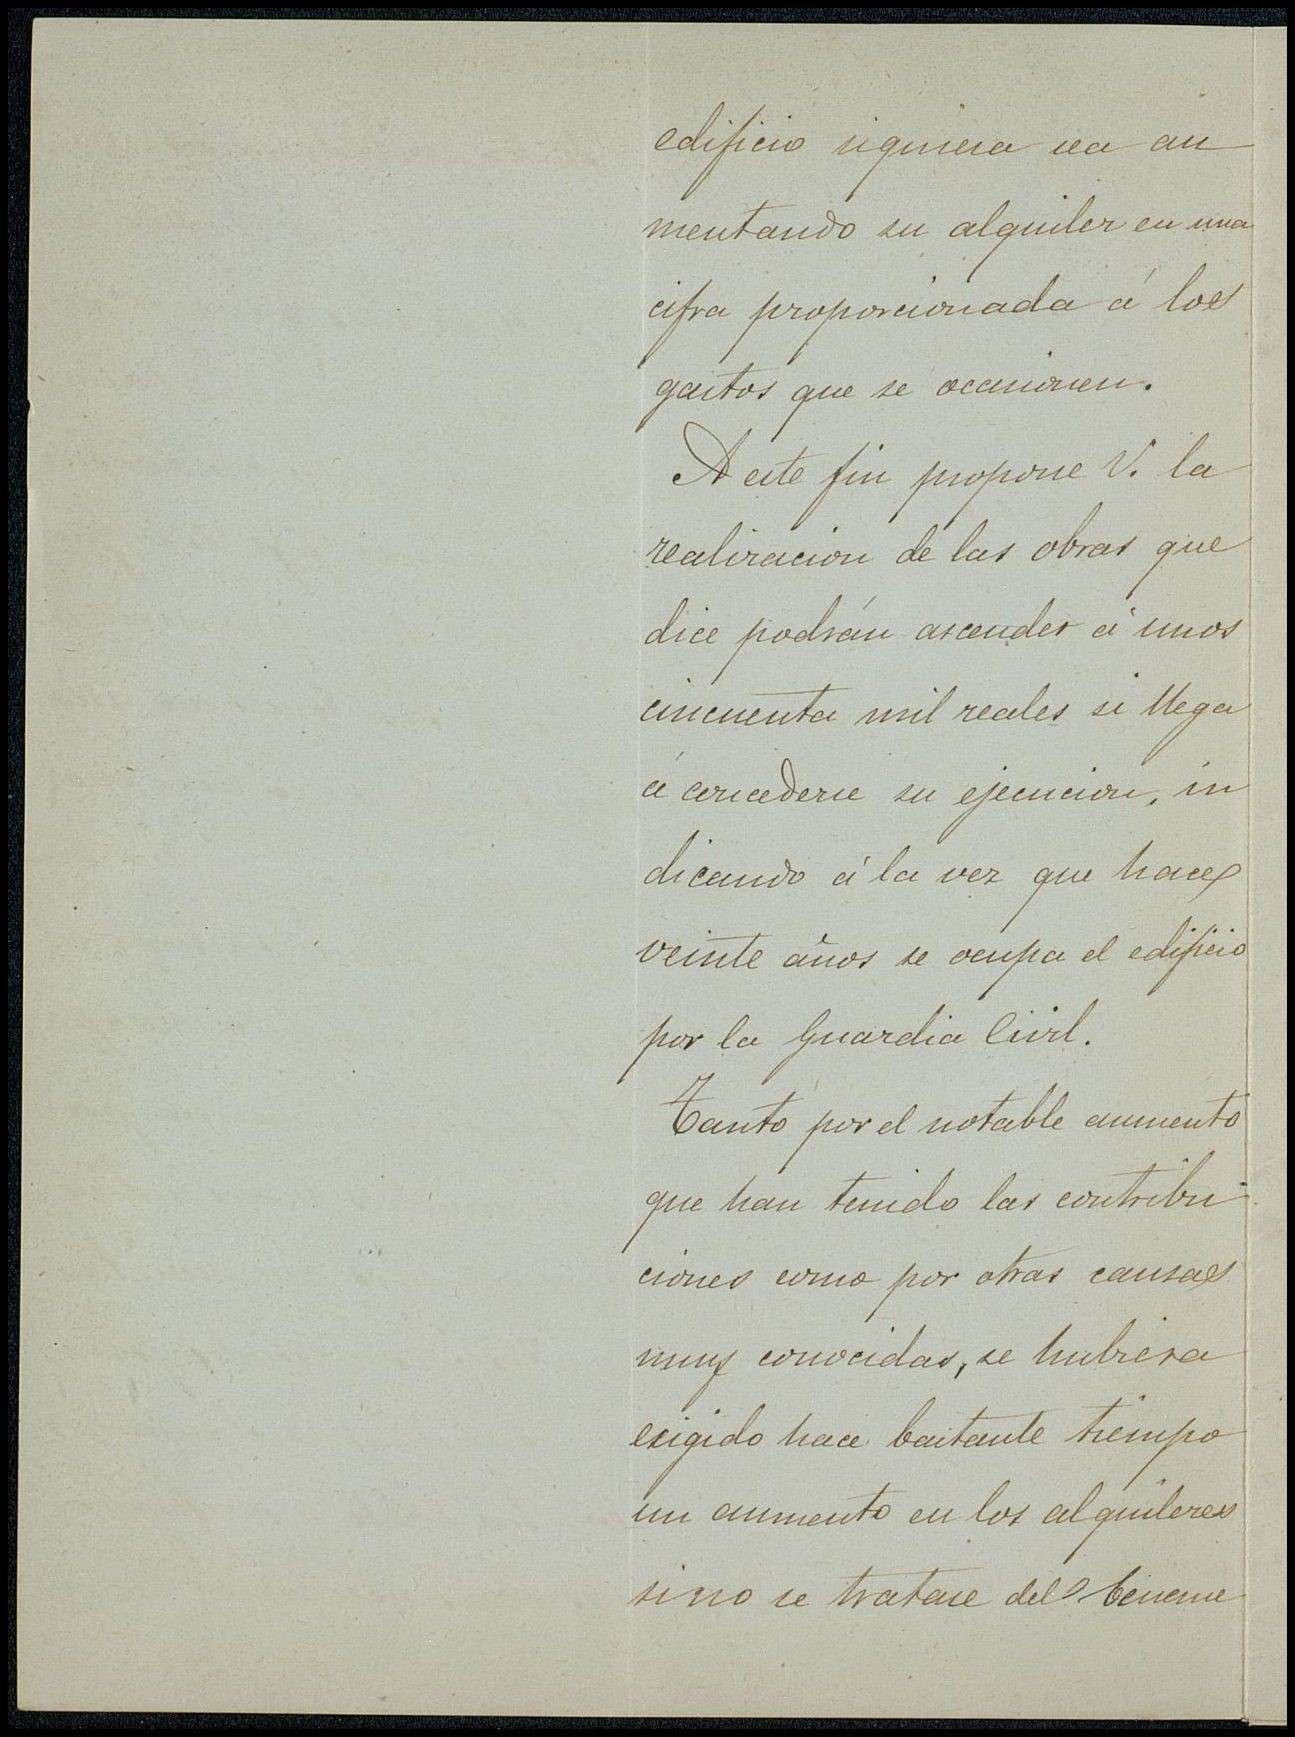 edificio siquiera sea au
mentando su alquiler en una
cifra proporcionada á los
gastos que se ocasionen.
A este fin propone V. la
realizacion de las obras que
dice podrán ascender á unos
cincuenta mil reales si llega
á concederse su ejecucion, in
dicando á la vez que hace
veinte años se ocupa el edificio
por la Guardia Civil.
Tanto por el notable aumento
que han tenido las contribu
ciones como por otras causas
muy conocidas, se hubiera
exigido hace bastante tiempo
un aumento en los alquileres
si no se tratase del beneme